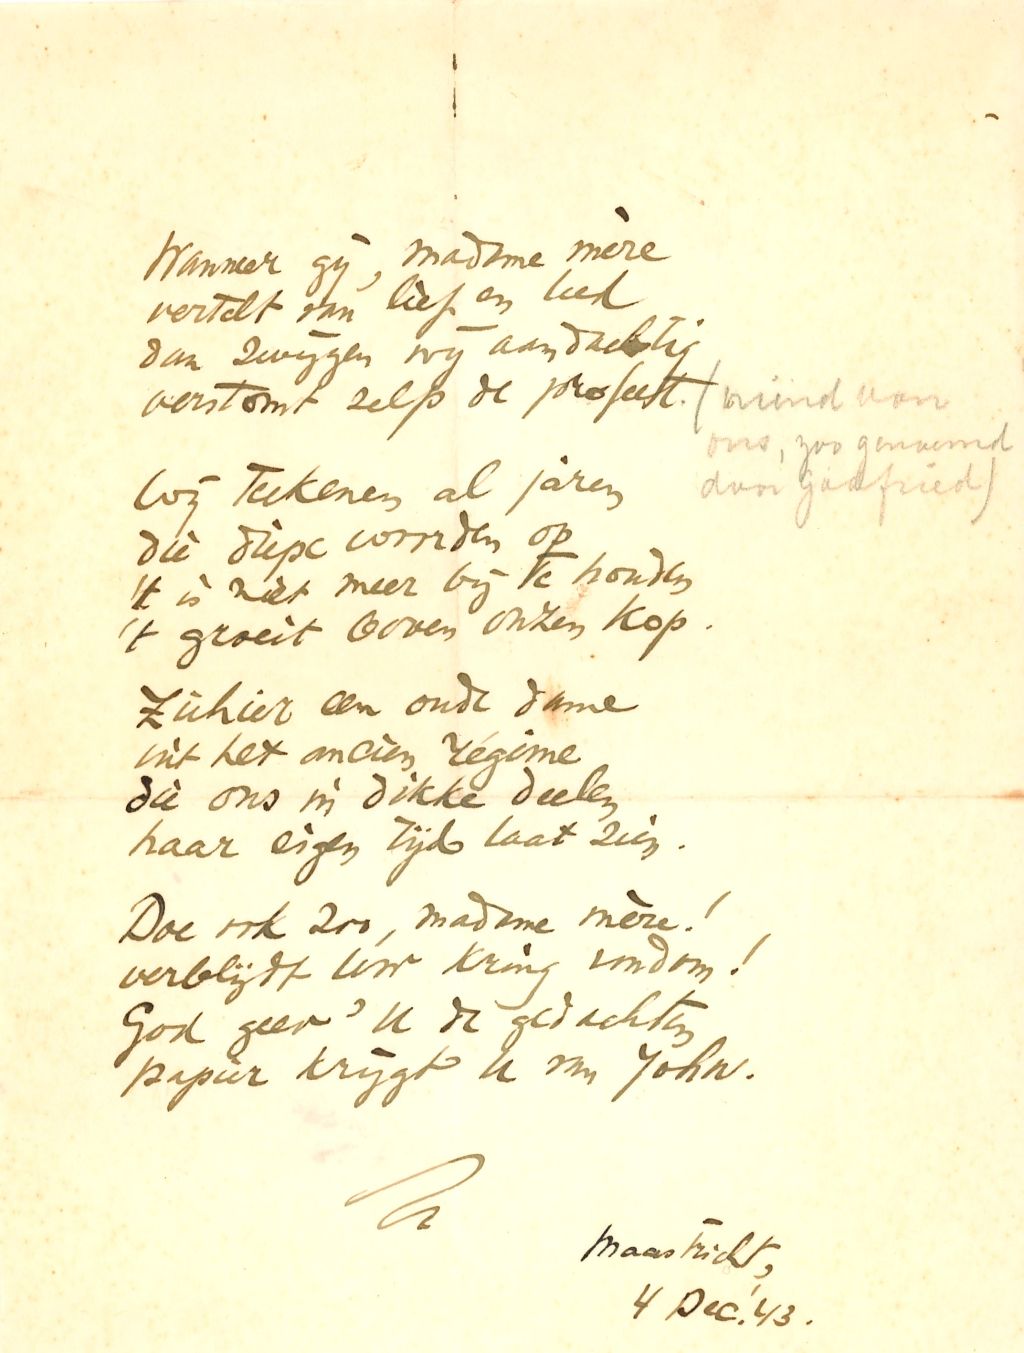 Wanneer gij, madame mère
vertelt van lief en leed
dan zwijgen wij aandachtig
verstomt zelfs de profeet. (vriend van
ons, zoo genoemd
door Godfried)
Wij teekenen al jaren
die diepe woorden op
't is niet meer bij te houden
't groeit boven onzen kop.
Ziehier een oude dame
uit het ancien régime
die ons in dikke deelen
haar eigen tijd laat zien.
Doe ook zoo, madame mère!
verblijdt Uw kring rondom!
God geev' U de gedachten
papier krijgt U van John.
Maastricht,
4 Dec. '43.